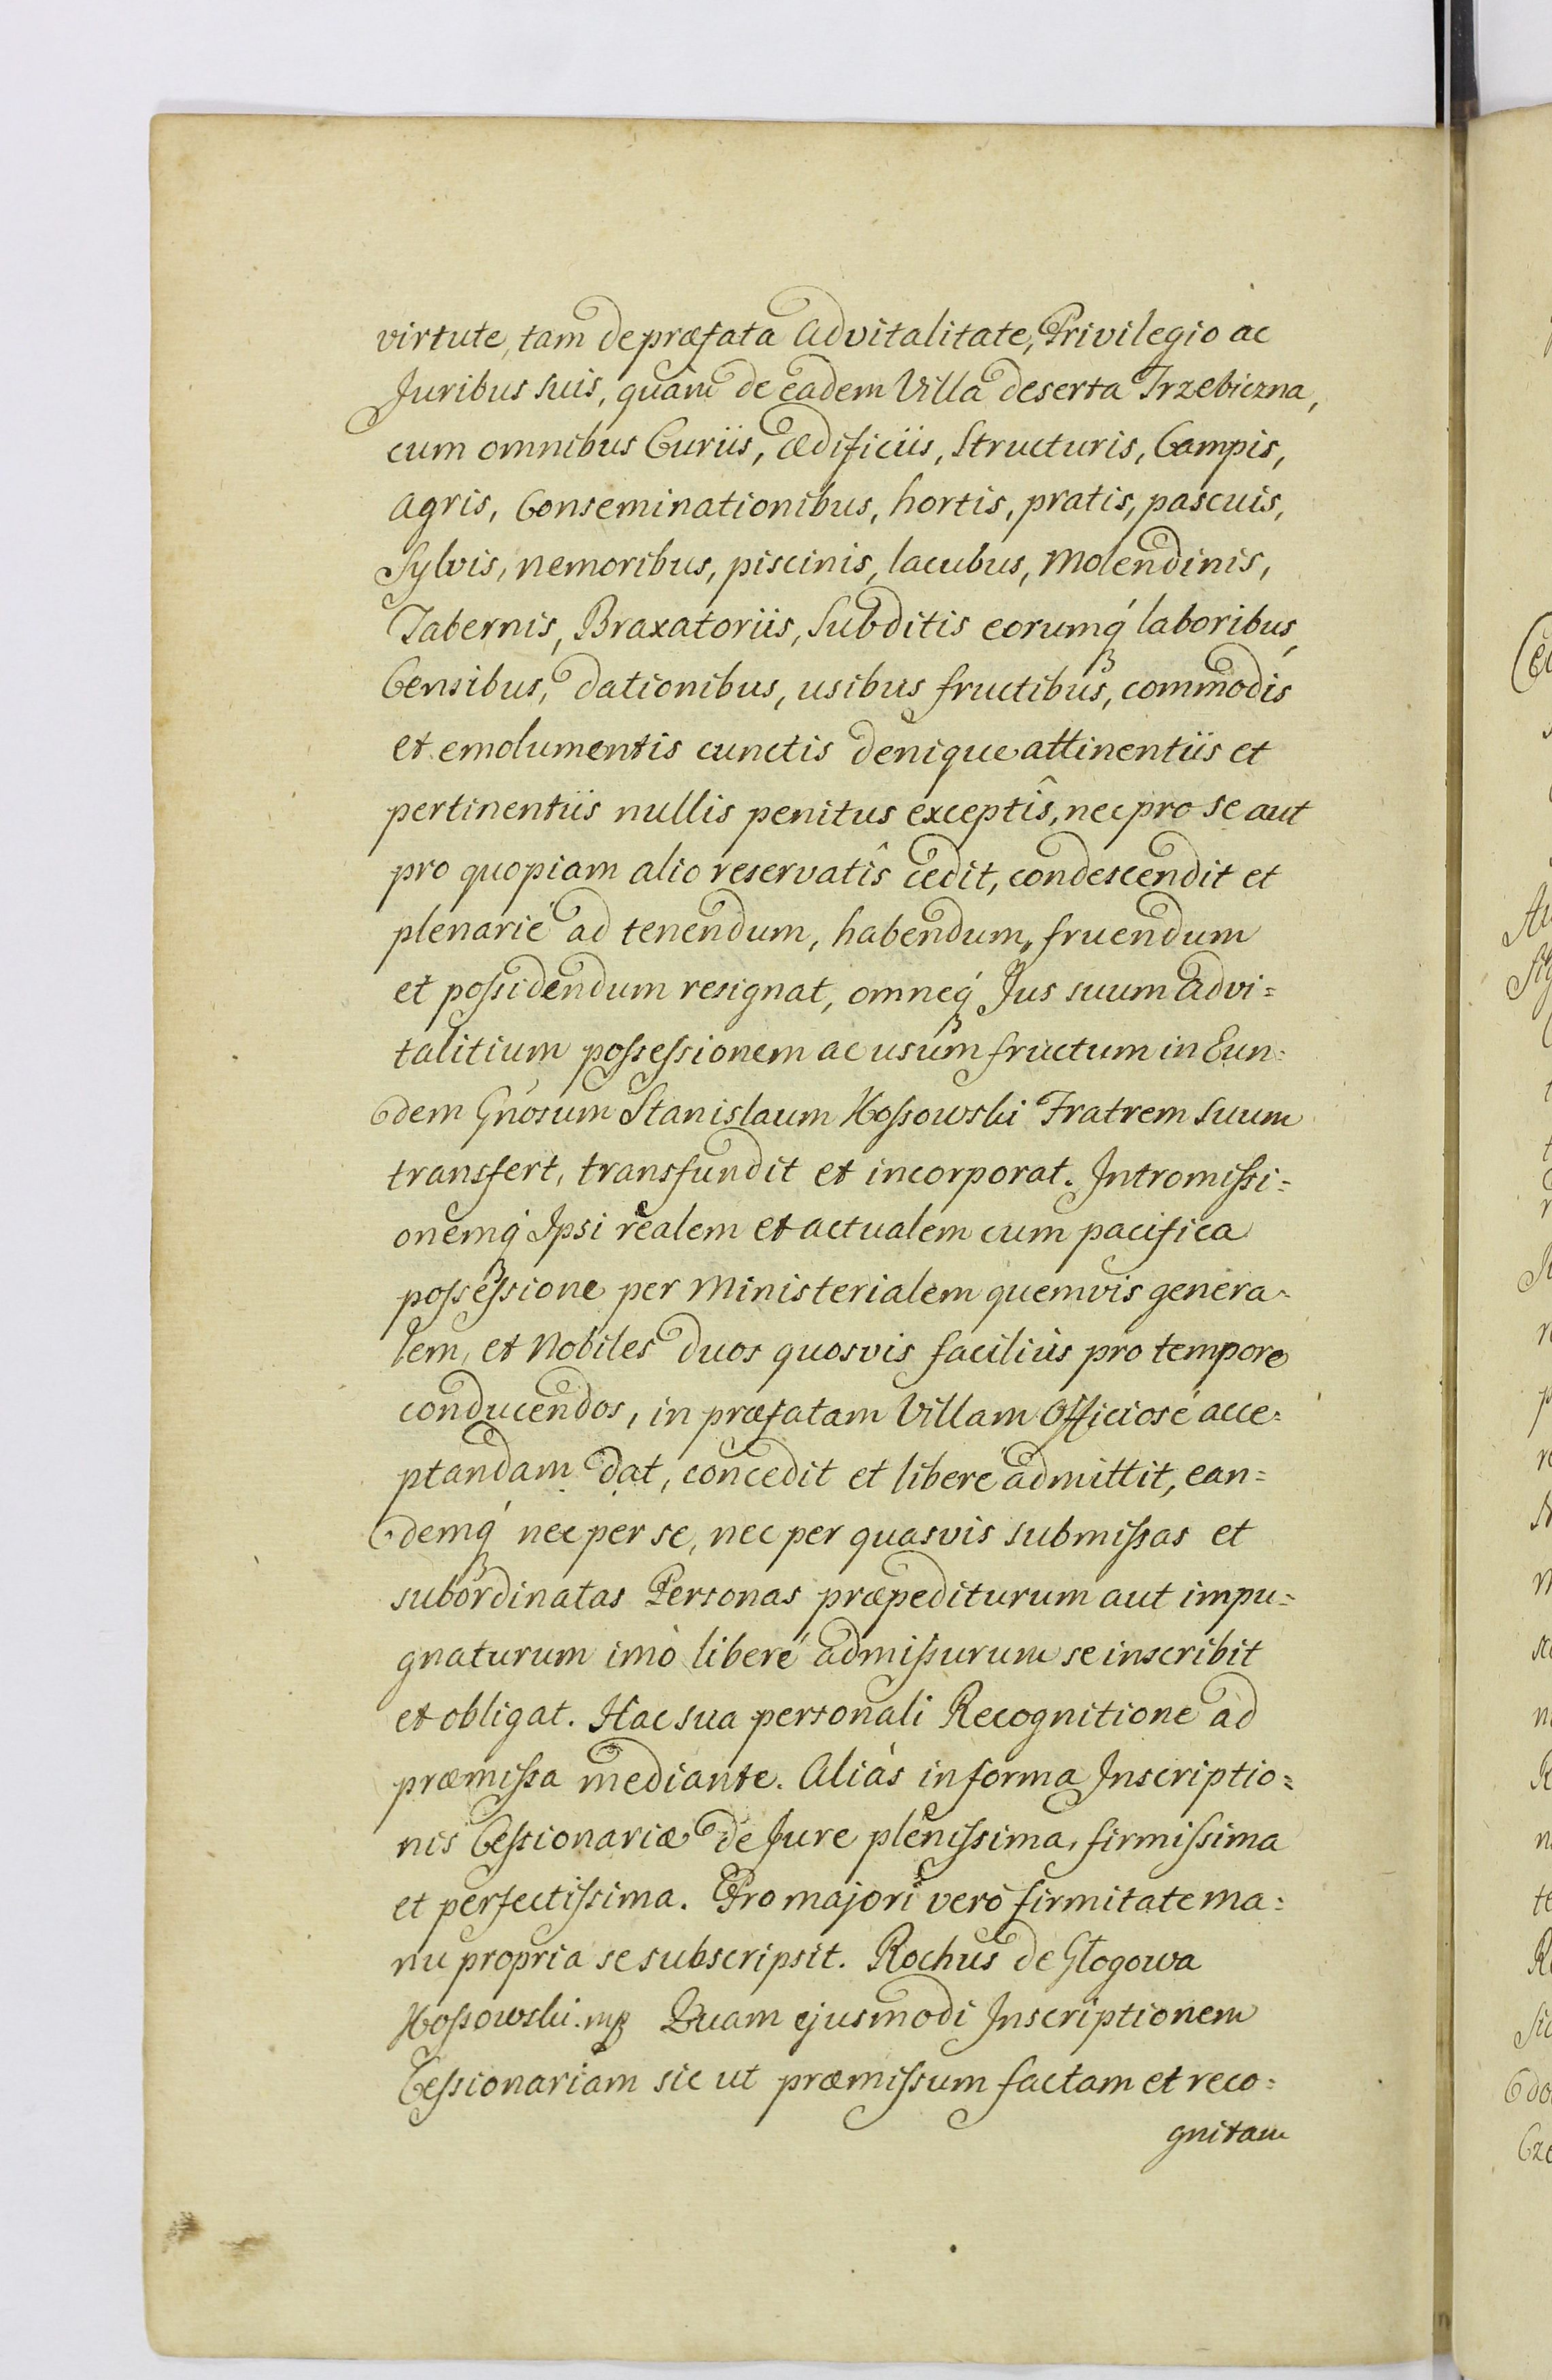 virtute, tam de præfata Advitalitate, Privilegio ac
Juribus suis, quàm de eadem Villa deserta Trzebiczna,
cum omnibus Curiis, ædificiis, Structuris, Campis,
agris, Conseminationibus, hortis, pratis, pascuis,
Sylvis, nemoribus, piscinis, lacubus, Molendinis,
Tabernis, Braxatoriis, Subditis eorumq́ laboribus,
Censibus, dationibus, usibus fructibus, commodis
et emolumentis cunctis denique attinentiis et
pertinentiis nullis penitus exceptîs, nec pro se aut
pro quopiam alio reservatîs cedit, condescendit et
plenariè ad tenendum, habendum, fruendum
et possidendum resignat, omneq́ Jus suum advi=
talitium possessionem ac usum fructum in Eun=
dem Gnosum Stanislaum Kossowski Fratrem suum
transfert, transfundit et incorporat. Intromissi=
onemq́ Ipsi realem et actualem cum pacifica
possessione per Ministerialem quemvis genera=
lem, et Nobiles duos quosvis faciliùs pro tempore
conducendos, in præfatam Villam Officiosè acce=
ptandam dat, concedit et liberè admittit, ean=
demq́ nec per se, nec per quasvis submissas et
subordinatas Personas præpediturum aut impu=
gnaturum imò liberè admissurum se inscribit
et obligat. Hac sua personali Recognitione ad
præmissa mediante. Aliàs in forma Inscriptio=
nis Cessionariæ de Jure plenissima, firmissima
et perfectissima. Pro majori verò firmitate ma=
nu propria se subscripsit. Rochus de Głogowa
Kossowski. mp Quam ejusmodi Inscriptionem
Cessionariam sic ut præmissum factam et reco=
gnitam